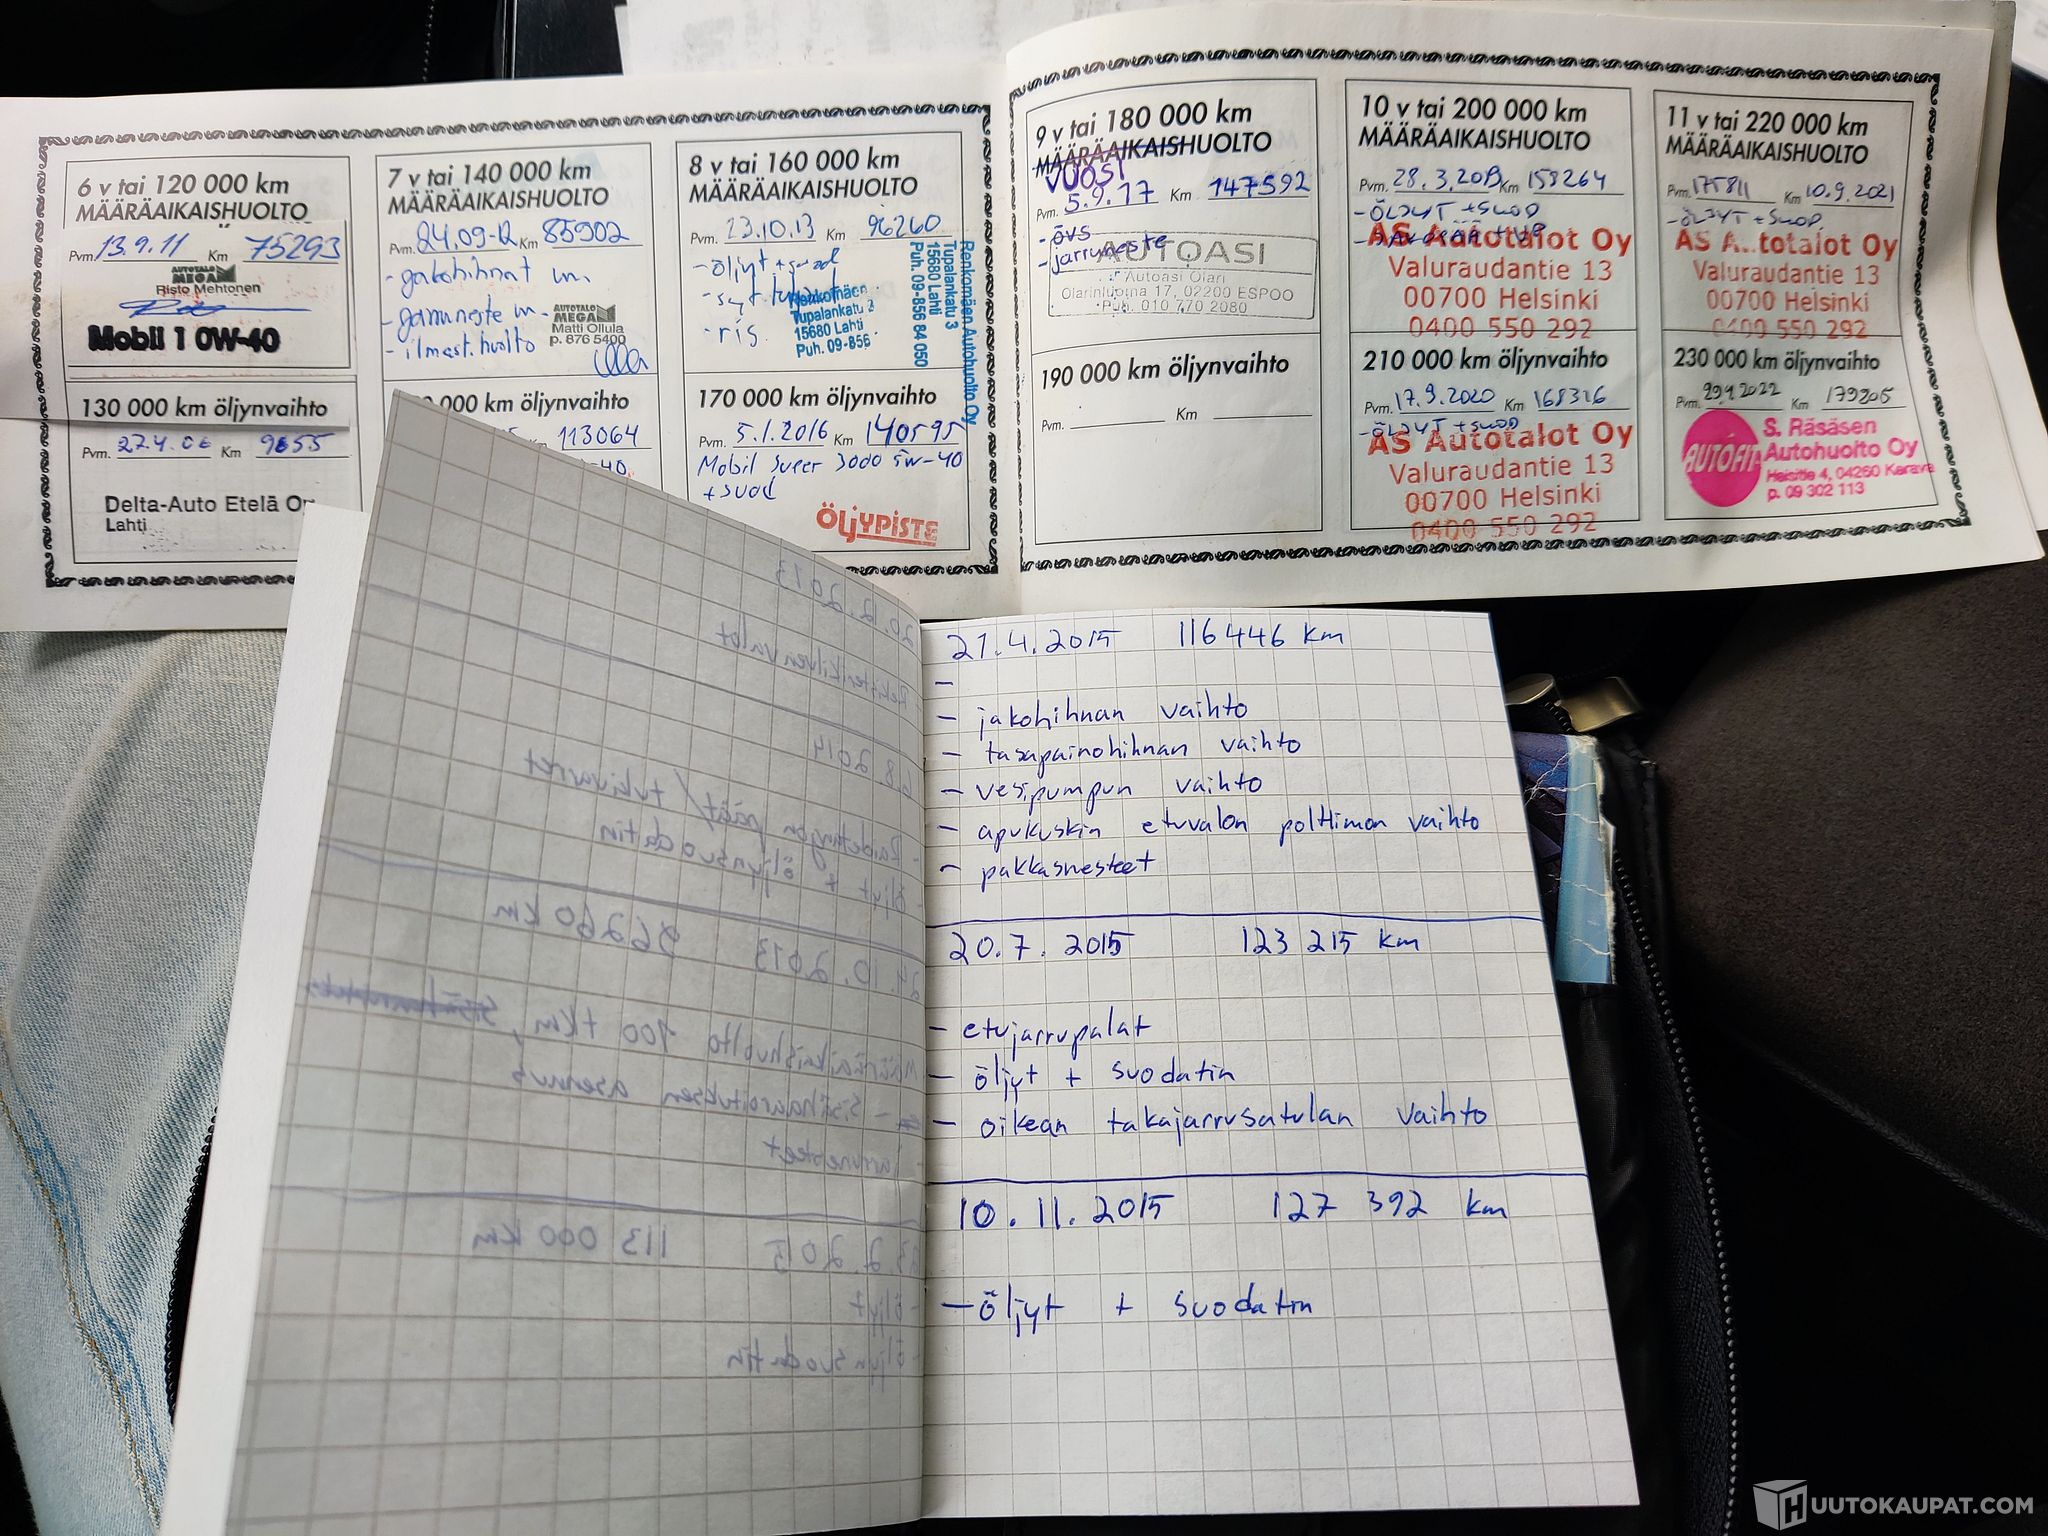 6 v tai 120 000 km
MÄÄRÄAIKAISHUOLTO
Pvm. 13.9.11 Km 75293
AUTOTALO
MEGA
Risto Mehtonen
Mobil 1 0W-40
130 000 km öljynvaihto
Pvm. 27.4.06 Km 9655
Delta-Auto Etelä Oy
Lahti
7 v tai 140 000 km
MÄÄRÄAIKAISHUOLTO
Pvm. 24.09-12 Km 85902
- jakohihnat
- jarruneste
- ilmast. huolto
AUTOTALO
MEGA
Matti Ollula
p. 876 5400
000 km öljynvaihto
113064
8 v tai 160 000 km
MÄÄRÄAIKAISHUOLTO
Pvm. 23.10.13 Km 96260
- öljyt + suod
- ris.
Tupalankatu
15680 Lahti
Puh. 09-856
Renkomäen Autohuolto Oy
Tupalankatu 3
15680 Lahti
Puh. 09-856 84 050
170 000 km öljynvaihto
Pvm. 5.1.2016 Km 140595
Mobil Super 3000 5w-40
+ suod
ÖLJYPISTE
9 v tai 180 000 km
MÄÄRÄAIKAISHUOLTO
VUOSI
Pvm. 5.9.17 Km 147592
- övs
- jarruneste
AUTOASI
Autoasi Olari
Olarinluoma 17, 02200 ESPOO
Puh. 010 770 2080
190 000 km öljynvaihto
Pvm. Km
10 v tai 200 000 km
MÄÄRÄAIKAISHUOLTO
Pvm. 28.3.2019 Km 158264
- ÖLJYT + SUOD
AS Autotalot Oy
Valuraudantie 13
00700 Helsinki
0400 550 292
210 000 km öljynvaihto
Pvm. 17.9.2020 Km 168326
- ÖLJYT + SUOD
AS Autotalot Oy
Valuraudantie 13
00700 Helsinki
0400 550 292
11 v tai 220 000 km
MÄÄRÄAIKAISHUOLTO
Pvm. 175811 Km 10.9.2021
- ÖLJYT + SUOD
AS A..totalot Oy
Valuraudantie 13
00700 Helsinki
0400 550 292
230 000 km öljynvaihto
Pvm. 29.4.2022 Km 179205
AUTOFIT
S. Räsäsen
Autohuolto Oy
Heisitie 4, 04260 Kerava
p. 09 302 113
20.12.2013
- Rekisterikilven valot
6.8.2014
- Raidetangon päät / tukivarret
- öljyt + öljynsuodatin
24.10.2013 96260 km
Määräaikaishuolto 100 tkm,
- Sisähaaroituksen asennus
- Jarrunesteet
23.2.2015 113 000 km
- öljyt
- öljynsuodatin
21.4.2015 116446 km
-
- jakohihnan vaihto
- tasapainohihnan vaihto
- vesipumpun vaihto
- apukuskin etuvalon polttimon vaihto
- pakkasnesteet
20.7.2015 123 215 km
- etujarrupalat
- öljyt + suodatin
- oikean takajarrusatulan vaihto
10.11.2015 127 392 km
- öljyt + suodatin
HUUTOKAUPAT.COM